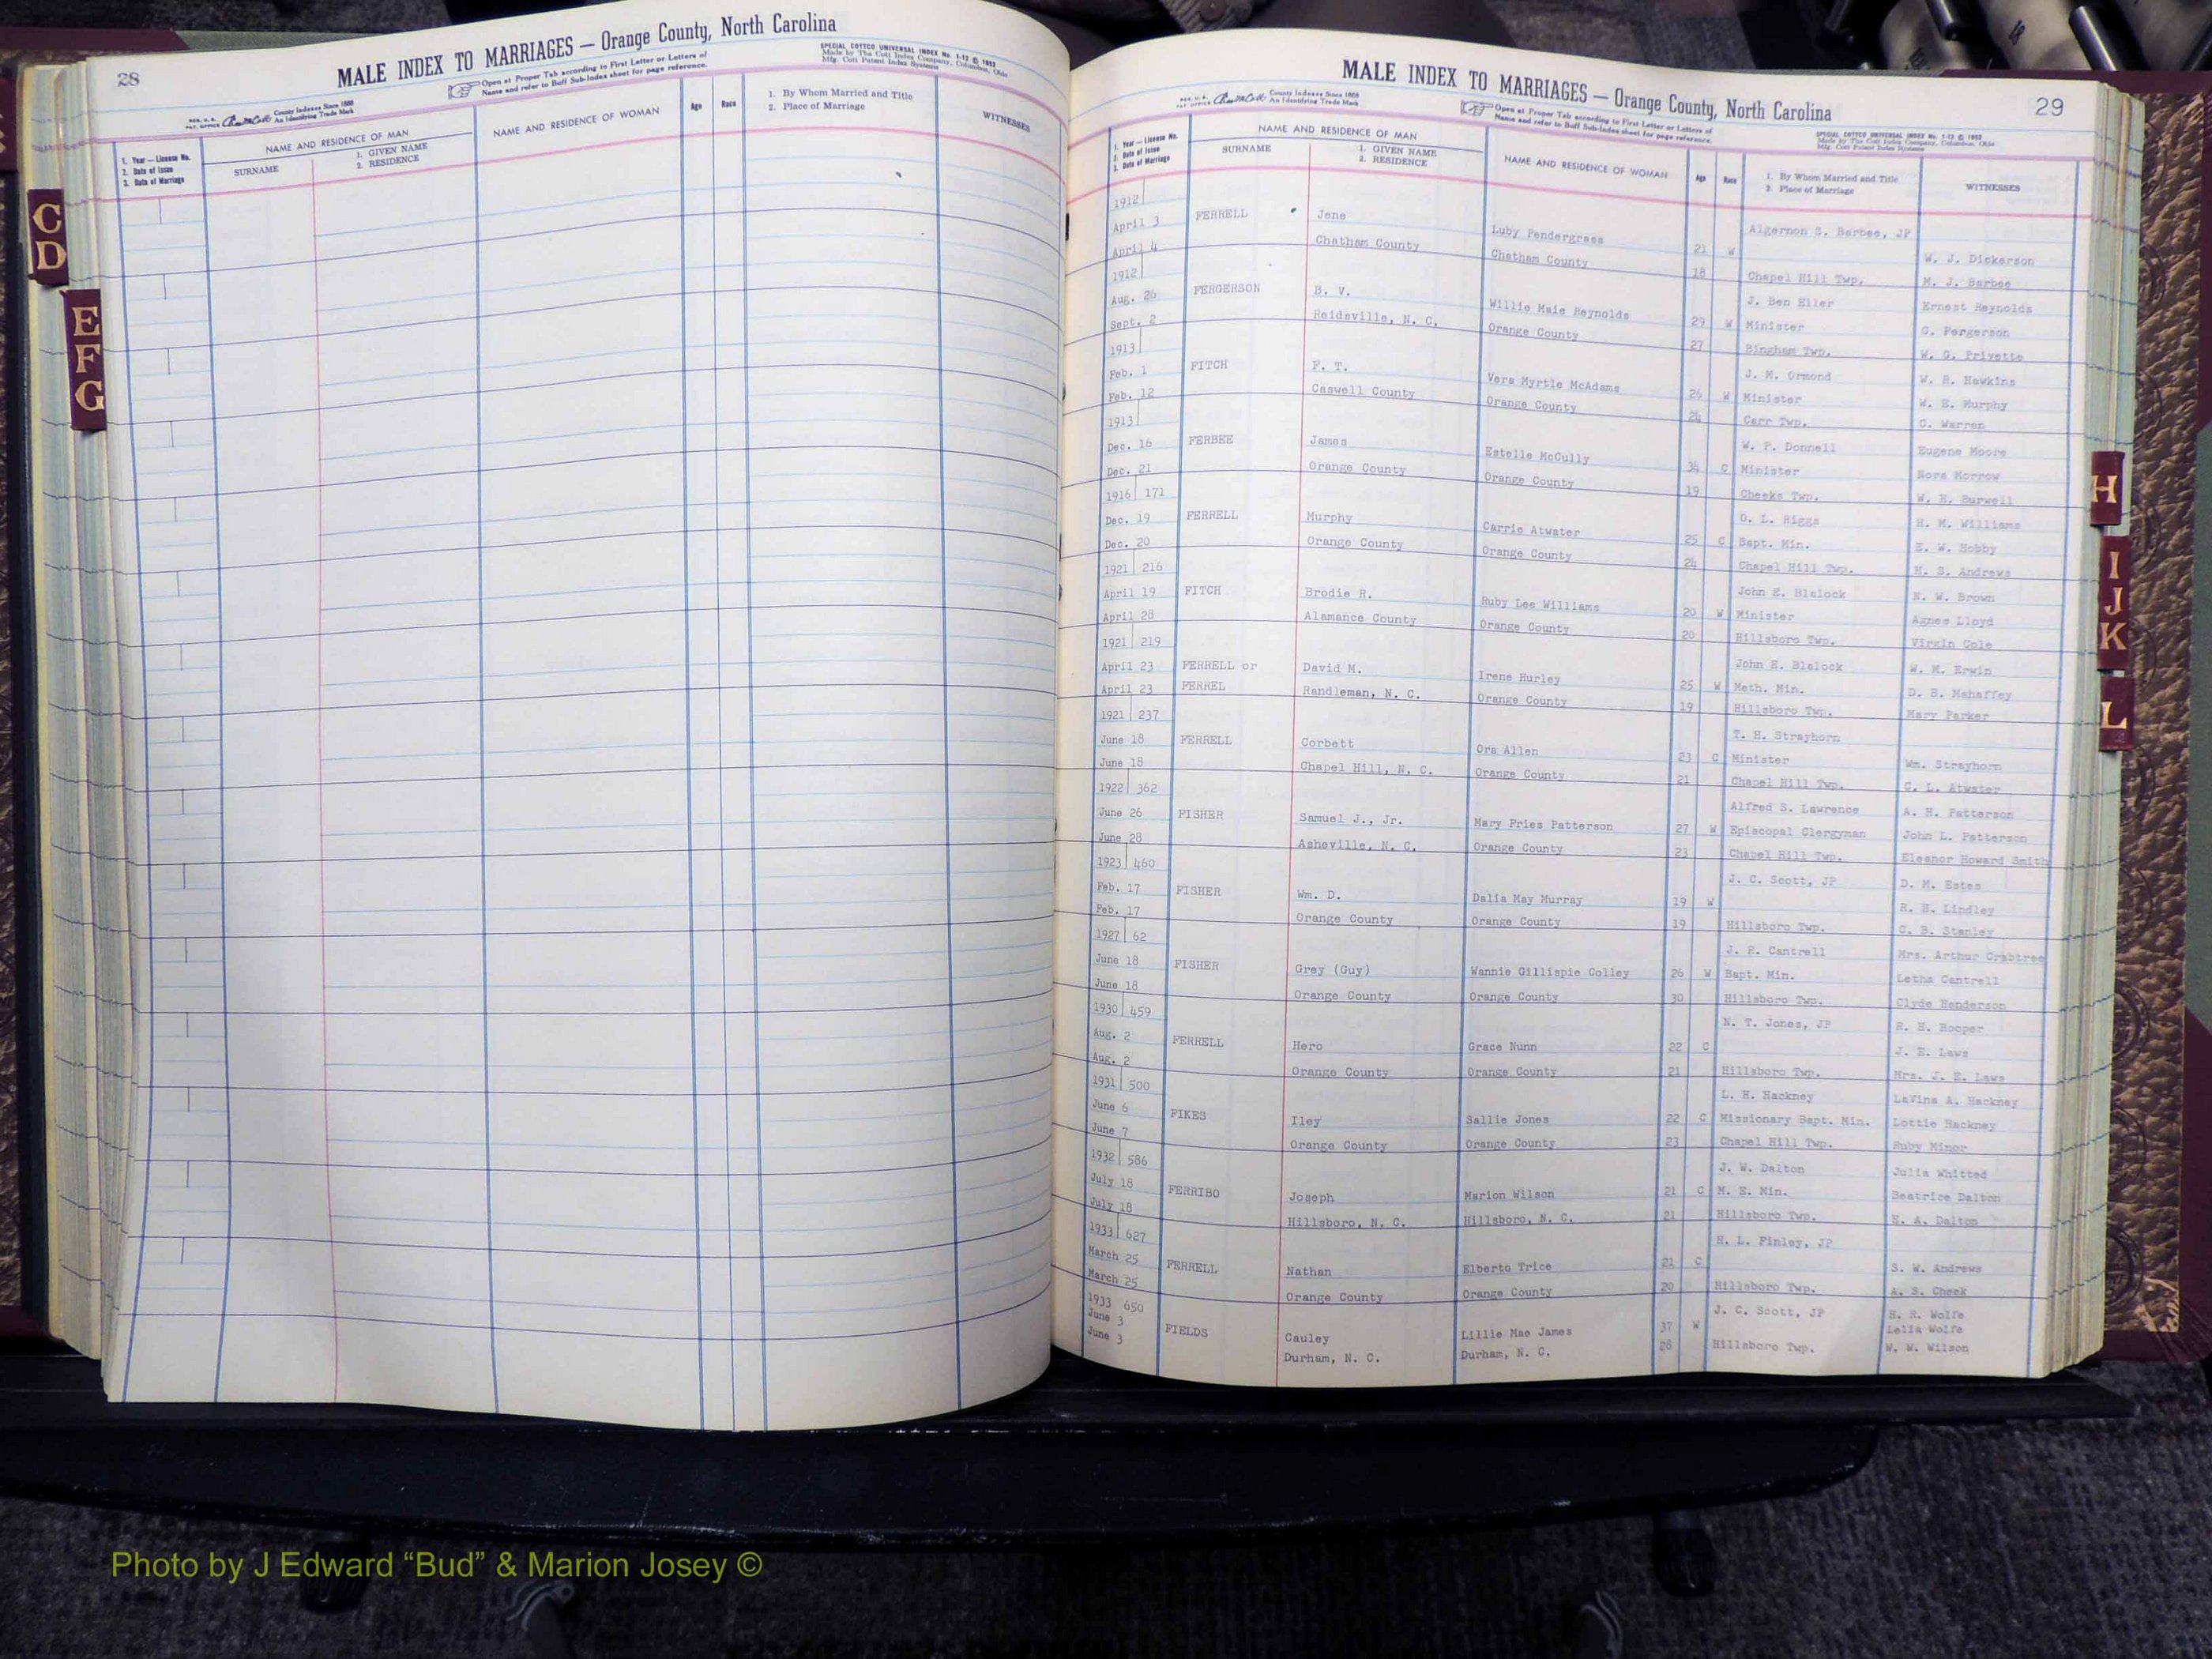 28
MALE INDEX TO MARRIAGES — Orange County, North Carolina
REG. U. S. PAT. OFFICE County Indexes Since 1888 An Identifying Trade Mark
Open at Proper Tab according to First Letter or Letters of
Name and refer to Buff Sub-Index sheet for page reference.
SPECIAL COTTCO UNIVERSAL INDEX No. 1-12 © 1952
Made by The Cott Index Company, Columbus, Ohio
Mfg. Cott Patent Index Systems
1. Year — License No.
2. Date of Issue
3. Date of Marriage
NAME AND RESIDENCE OF MAN
SURNAME
1. GIVEN NAME
2. RESIDENCE
NAME AND RESIDENCE OF WOMAN
Age
Race
1. By Whom Married and Title
2. Place of Marriage
WITNESSES
C
D
E
F
G
MALE INDEX TO MARRIAGES — Orange County, North Carolina
29
REG. U. S. PAT. OFFICE County Indexes Since 1888 An Identifying Trade Mark
Open at Proper Tab according to First Letter or Letters of
Name and refer to Buff Sub-Index sheet for page reference.
SPECIAL COTTCO UNIVERSAL INDEX No. 1-12 © 1952
Made by The Cott Index Company, Columbus, Ohio
Mfg. Cott Patent Index Systems
1. Year — License No.
2. Date of Issue
3. Date of Marriage
NAME AND RESIDENCE OF MAN
SURNAME
1. GIVEN NAME
2. RESIDENCE
NAME AND RESIDENCE OF WOMAN
Age
Race
1. By Whom Married and Title
2. Place of Marriage
WITNESSES
1912 Algernon S. Barbee, JP
April 3 FERRELL Jene Luby Pendergrass 21 W W. J. Dickerson
April 4 Chatham County Chatham County 18 Chapel Hill Twp. M. J. Barbee
1912 J. Ben Eller Ernest Reynolds
Aug. 26 FERGERSON B. V. Willie Maie Reynolds 29 W Minister G. Fergerson
Sept. 2 Reidsville, N. C. Orange County 27 Bingham Twp. W. G. Privette
1913 J. M. Ormond W. R. Hawkins
Feb. 1 FITCH P. T. Vera Myrtle McAdams 26 W Minister W. E. Murphy
Feb. 12 Caswell County Orange County 24 Carr Twp. C. Warren
1913 W. P. Donnell Eugene Moore
Dec. 16 FERBEE James Estelle McCully 34 C Minister Nora Morrow
Dec. 21 Orange County Orange County 19 Cheeks Twp. W. H. Burwell
1916 171 O. L. Higgs H. M. Williams
Dec. 19 FERRELL Murphy Carrie Atwater 25 C Bapt. Min. E. W. Hobby
Dec. 20 Orange County Orange County 24 Chapel Hill Twp. H. S. Andrews
1921 216 John E. Blalock N. W. Brown
April 19 FITCH Brodie R. Ruby Lee Williams 20 W Minister Agnes Lloyd
April 28 Alamance County Orange County 20 Hillsboro Twp. Virgin Cole
1921 219 John E. Blalock W. M. Erwin
April 23 FERRELL or David M. Irene Hurley 25 W Meth. Min. D. B. Mahaffey
April 23 FERREL Randleman, N. C. Orange County 19 Hillsboro Twp. Mary Parker
1921 237 T. H. Strayhorn
June 18 FERRELL Corbett Ora Allen 23 C Minister Wm. Strayhorn
June 18 Chapel Hill, N. C. Orange County 21 Chapel Hill Twp. C. L. Atwater
1922 362 Alfred S. Lawrence A. H. Patterson
June 26 FISHER Samuel J., Jr. Mary Fries Patterson 27 W Episcopal Clergyman John L. Patterson
June 28 Asheville, N. C. Orange County 23 Chapel Hill Twp. Eleanor Howard Smith
1923 460 J. C. Scott, JP D. M. Estes
Feb. 17 FISHER Wm. D. Dalia May Murray 19 W R. H. Lindley
Feb. 17 Orange County Orange County 19 Hillsboro Twp. C. B. Stanley
1927 62 J. R. Cantrell Mrs. Arthur Crabtree
June 18 FISHER Grey (Guy) Wannie Gillispie Colley 26 W Bapt. Min. Letha Cantrell
June 18 Orange County Orange County 30 Hillsboro Twp. Clyde Henderson
1930 459 N. T. Jones, JP R. H. Hooper
Aug. 2 FERRELL Hero Grace Nunn 22 C J. E. Laws
Aug. 2 Orange County Orange County 21 Hillsboro Twp. Mrs. J. E. Laws
1931 500 L. H. Hackney LaVina A. Hackney
June 6 FIKES Iley Sallie Jones 22 C Missionary Bapt. Min. Lottie Hackney
June 7 Orange County Orange County 23 Chapel Hill Twp. Ruby Minor
1932 586 J. W. Dalton Julia Whitted
July 18 FERRIBO Joseph Marion Wilson 21 C M. E. Min. Beatrice Dalton
July 18 Hillsboro, N. C. Hillsboro, N. C. 21 Hillsboro Twp. E. A. Dalton
1933 627 H. L. Finley, JP
March 25 FERRELL Nathan Elberto Trice 21 C S. W. Andrews
March 25 Orange County Orange County 20 Hillsboro Twp. A. S. Cheek
1933 650 J. C. Scott, JP H. R. Wolfe
June 3 FIELDS Cauley Lillie Mae James 37 W Lelia Wolfe
June 3 Durham, N. C. Durham, N. C. 28 Hillsboro Twp. W. W. Wilson
H
I
J
K
L
Photo by J Edward “Bud” & Marion Josey ©